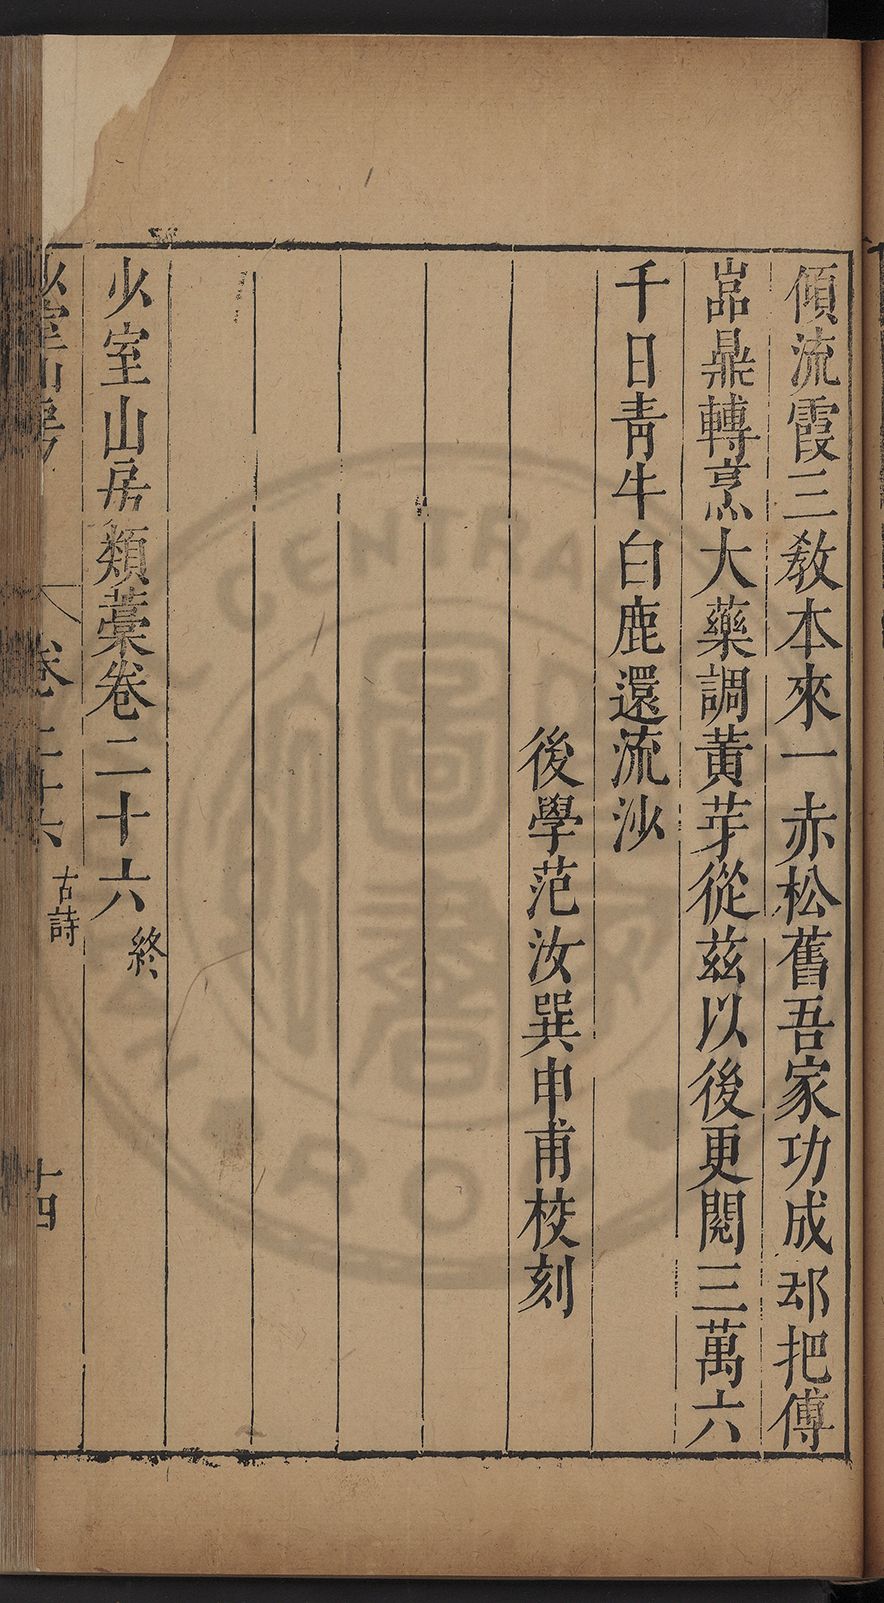 傾流霞三教本來一赤松舊吾家功成却把傅
嵓鼎轉烹大藥調黃芽從兹以後更閱三萬六
千日青牛白鹿還流沙
後學范汝巽申甫校刻
少室山房類藁卷二十六終
少室山房
卷二十六 古詩
十四